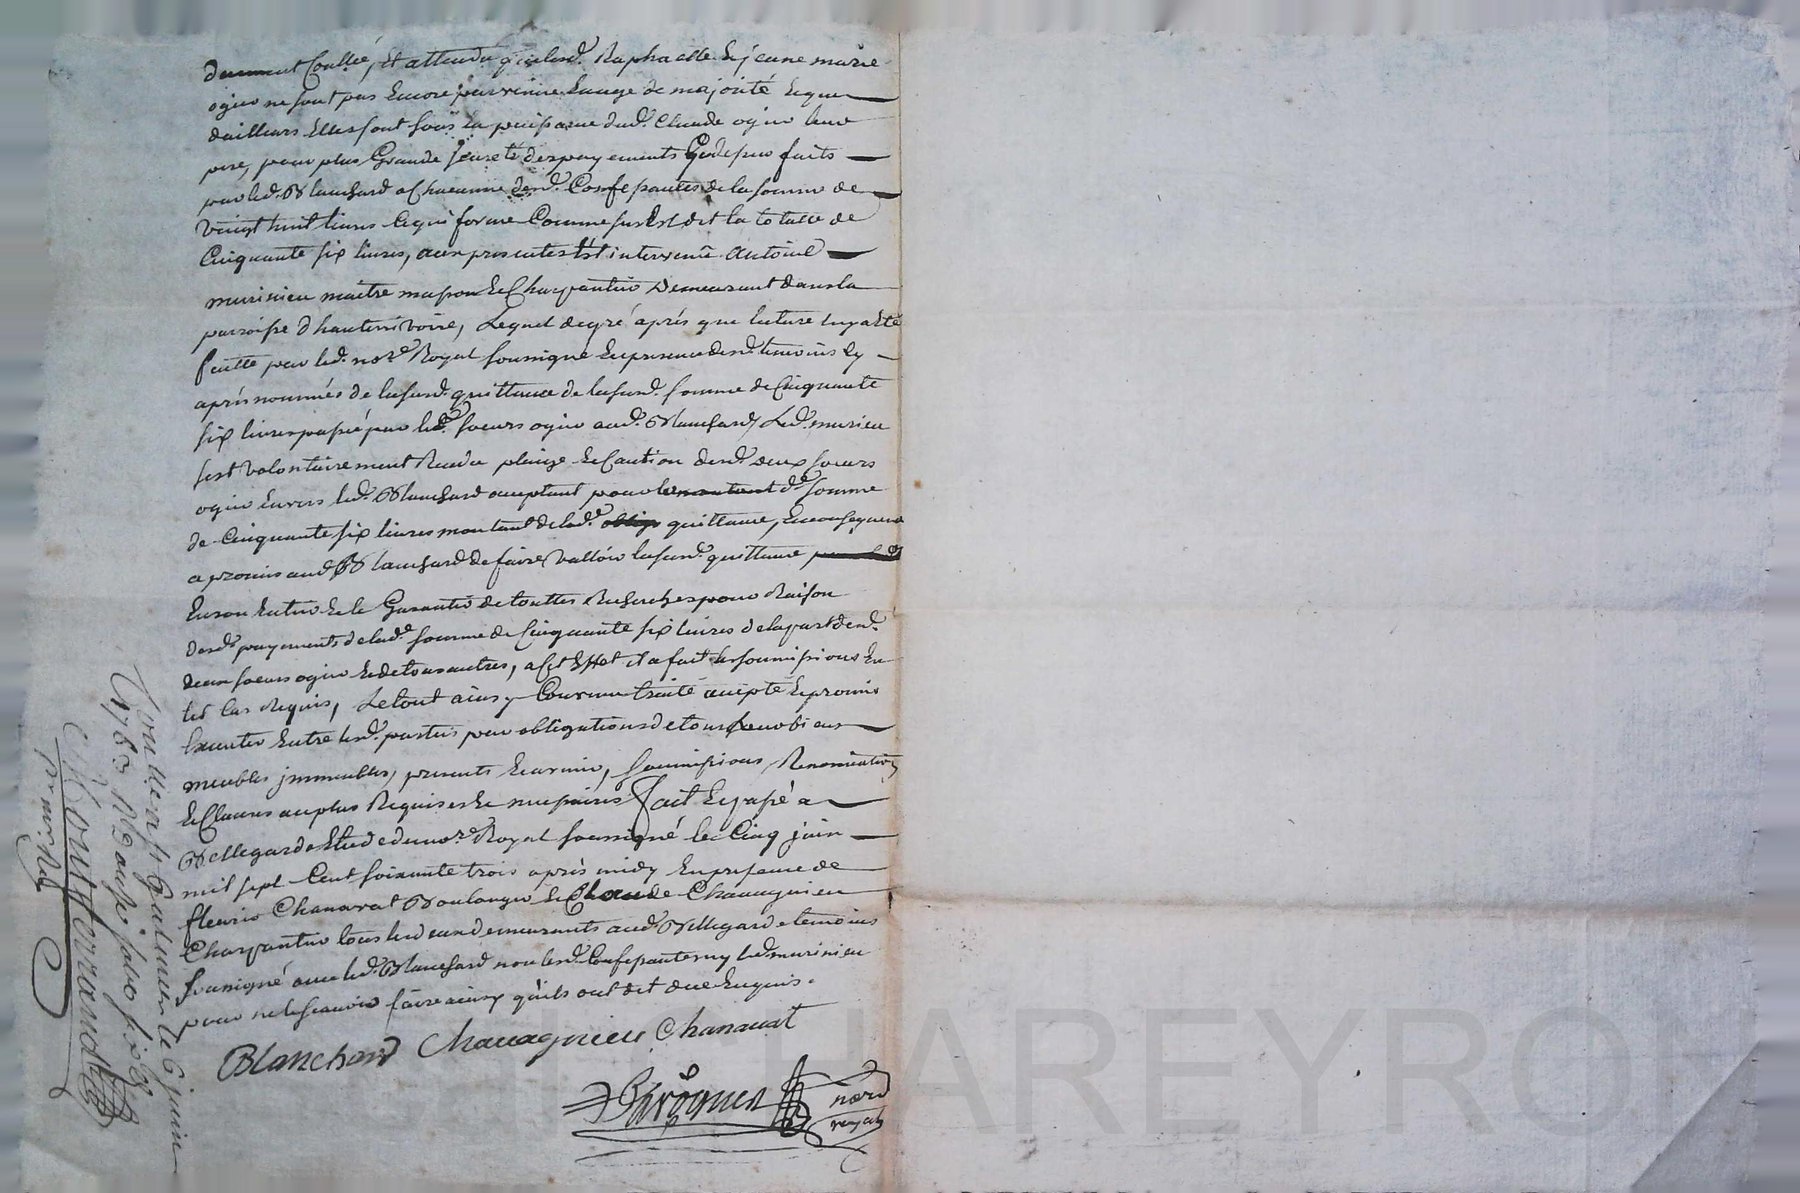 dument Conllié, Et attendu quelesd. Raphaelle Et jeanne marie
ogier ne sont pas Encore parvenue En aage de majorité Et que
dailleurs Elles sont sous la puissance dud. Claude ogier leur
pere, pour plus Grande seureté des payements Cy dessus faits
par led. Blanchard a Chacunne desd. Confessantes de la somme de
vingt huit livres Ce qui forme Comme sus Est dit la totalle de
Cinquante six livres, aux presentes Est intervenu Antoine
murinieu maitre masson Et Charpentier Demeurant dans la
parroisse d'hauterivoire, Lequel de gré après que lecture luy a Eté
faitte par led. no.re Royal soussigné En presence desd. temoins Cy
après nommés de la susd. quittance de la susd. somme de Cinquante
six livres passée par lesd. soeurs ogier aud. Blanchard, Led. murinieu
s'est volontairement Rendu pleige Et Caution desd. deux soeurs
ogier Envers led. Blanchard acceptant pour le montant d. somme
de Cinquante six livres montant de lad.e oblig quittance, En consequence
a promis aud. Blanchard de faire valloir la susd. quittance
En son Entier Et le Garantir de touttes Recherches pour Raison
desd. payements de lad.e somme de Cinquante six livres de la part desd.
deux soeurs ogier Et de tous autres, a Cet Effet il a fait les soumissions En
tel Cas Requis, Le tout ainsy Convenu traité accepté Et promis
Executer Entre lesd. parties par obligations de tous Leurs biens
meubles immeubles, presents Et avenir, soumissions, Renonciations
Et Clauses au plus Requises Et necessaires. fait Et passé a
Bellegarde Etude du no.re Royal soussigné le Cinq juin
mil sept Cent soixante trois après midy En presence de
fleurie Chanavat Boulanger Et Claude Chavagnieu
Charpentier tous les deux demeurants aud. Bellegarde temoins
soussigné avec led. Blanchard non lesd. Confessantes ny led. murinieu
pour ne le scavoir faire ainsy qu'ils ont dit de ce Enquis.
Blanchard Chavagnieu Chanavat
no.re
royal
le 6 juin
1763
CHAREYRON